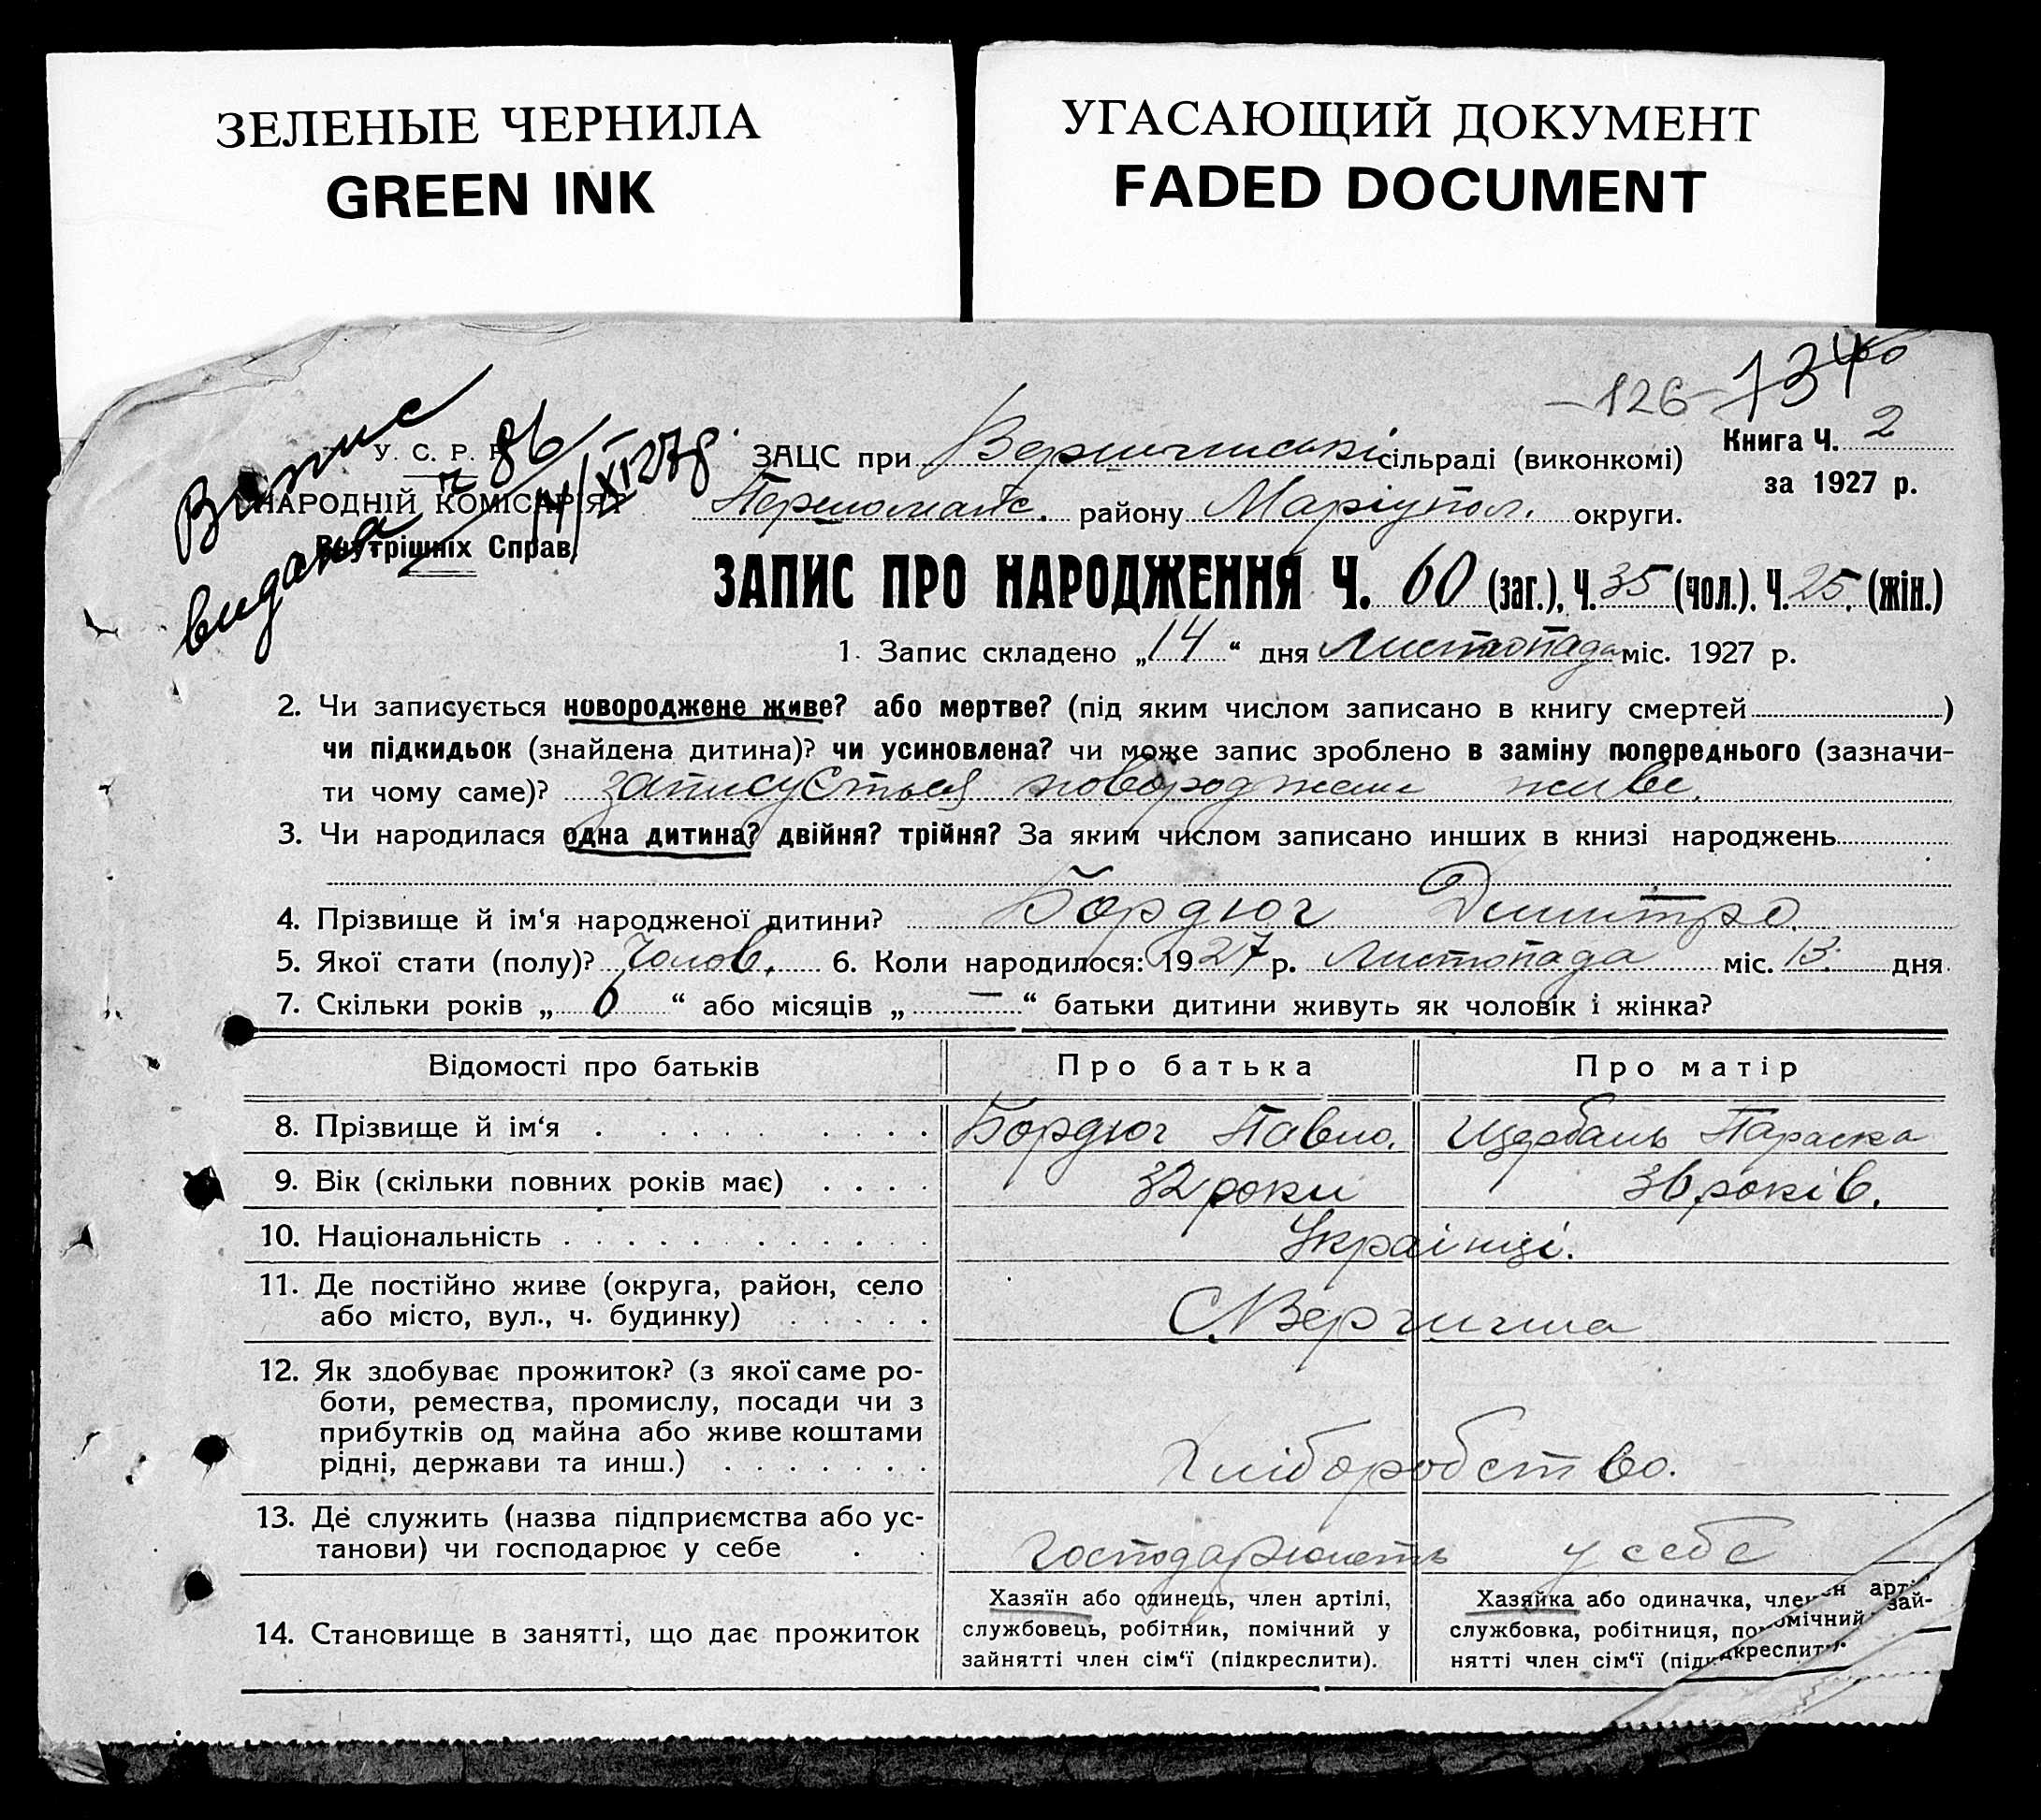 ЗЕЛЕНЫЕ ЧЕРНИЛА
GREEN INK
УГАСАЮЩИЙ ДОКУМЕНТ
FADED DOCUMENT
-126- 134
Книга Ч. 2
за 1927 р.
Випис
видана
ч 86
14/XI 27р.
У. С. Р. Р.
НАРОДНІЙ КОМІСАРІЯТ
Внутрішніх Справ
ЗАЦС при сільраді (виконкомі)
Першомайс. району Маріупол. округи.
ЗАПИС ПРО НАРОДЖЕННЯ Ч. 60 (заг.), Ч. 35 (чол.). Ч. 25. (жін.)
1. Запис складено „14“ дня Листопада міс. 1927 р.
2. Чи записується новороджене живе? або мертве? (під яким числом записано в книгу смертей )
чи підкидьок (знайдена дитина)? чи усиновлена? чи може запис зроблено в заміну попереднього (зазначи-
ти чому саме)? записується новороджене живе.
3. Чи народилася одна дитина? двійня? трійня? За яким числом записано инших в книзі народжень
4. Прізвище й ім‘я народженої дитини? Бордюг Дмитро.
5. Якої стати (полу)? Чолов. 6. Коли народилося: 1927 р. Листопада міс. 13. дня
7. Скільки років „6“ або місяців „—“ батьки дитини живуть як чоловік і жінка?
Відомості про батьків Про батька Про матір
8. Прізвище й ім‘я Бордюг Павло. Щербань Параска
9. Вік (скільки повних років має) 32 роки 36 років.
10. Національність Українці.
11. Де постійно живе (округа, район, село
або місто, вул., ч. будинку) С.
12. Як здобуває прожиток? (з якої саме ро-
боти, ремества, промислу, посади чи з
прибутків од майна або живе коштами
рідні, держави та инш.) Хліборобство.
13. Де служить (назва підприємства або ус-
танови) чи господарює у себе господарюють у себе
14. Становище в занятті, що дає прожиток
Хазяїн або одинець, член артілі,
службовець, робітник, помічний у
зайнятті член сім‘ї (підкреслити).
Хазяйка або одиначка, член арті
службовка, робітниця, помічний зай-
нятті член сім‘ї (підкреслити